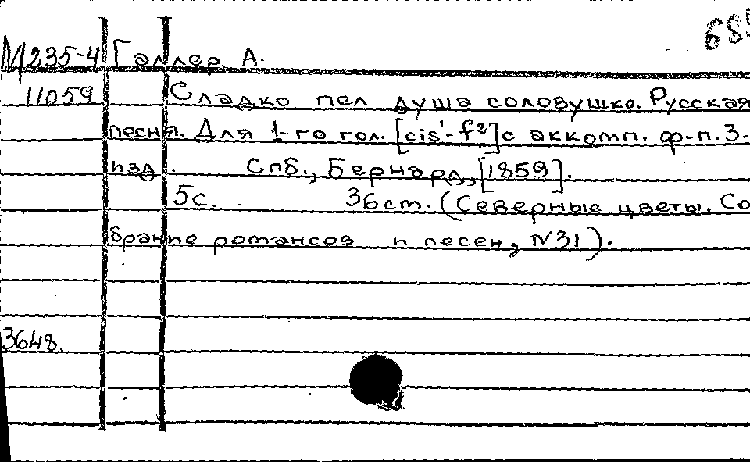 685
М235-4 Галлер А.
11059 Сладко пел душа соловушко. Русская
песня. Для 1-го гол. [cis¹-f²] с аккомп. ф-п. 3.
изд. Спб., Бернард, [1859].
5с. 36cm. (Северные цветы. Со
брание романсов и песен, N31).
3648.